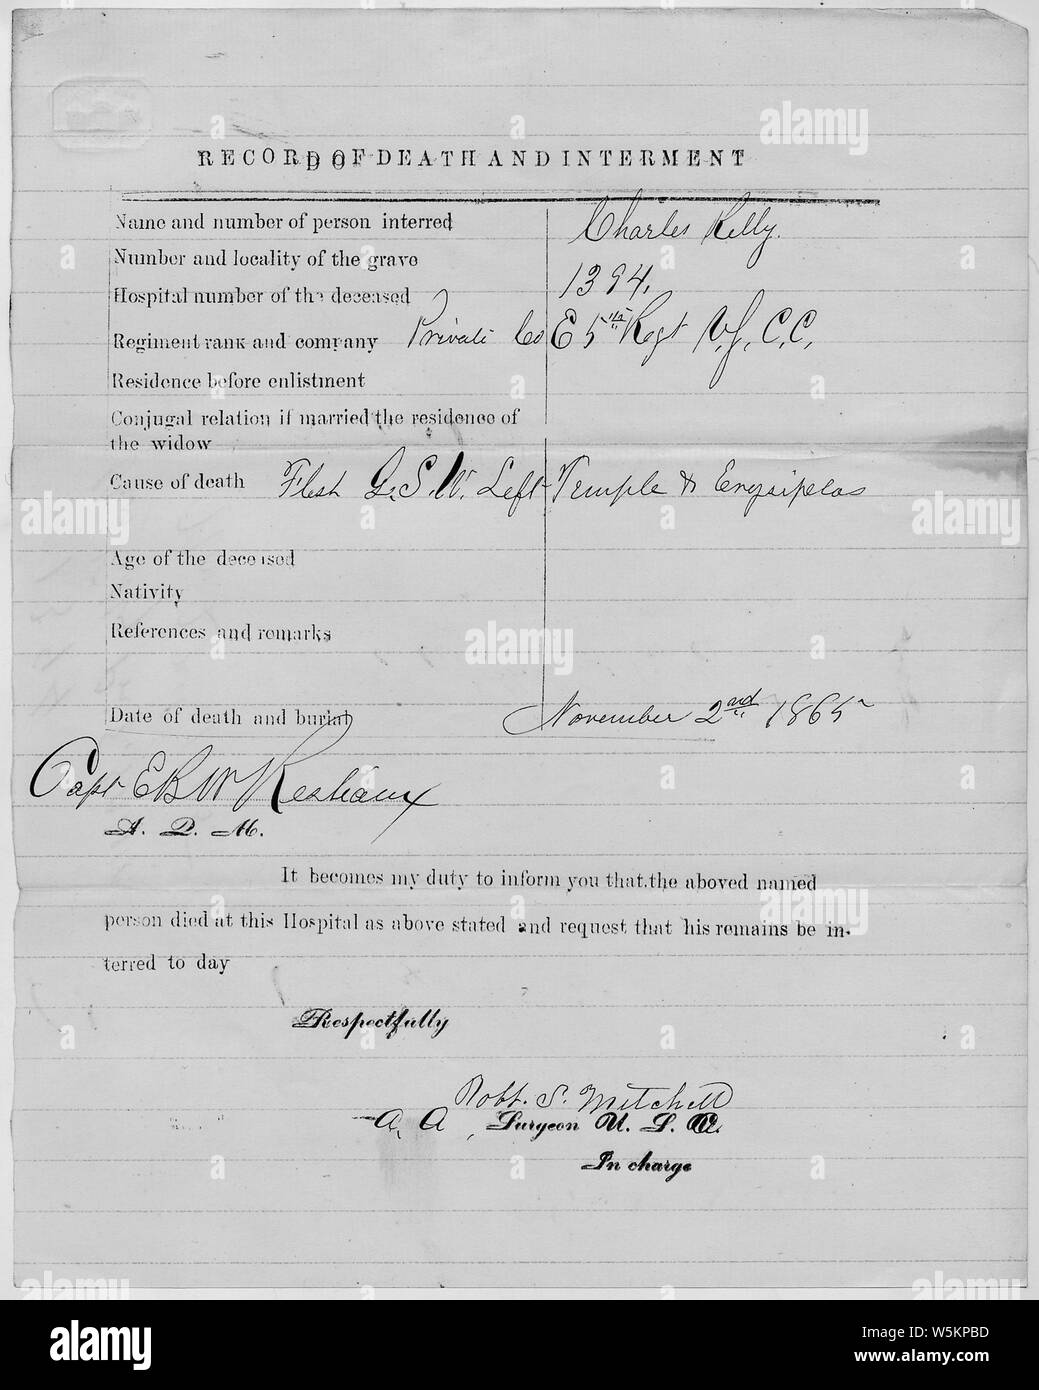 RECORD OF DEATH AND INTERMENT
Name and number of person interred Charles Kelly.
Number and locality of the grave
Hospital number of the deceased 1394.
Regiment rank and company Private Co E 5th Regt U.S.C.C.
Residence before enlistment
Conjugal relation if married the residence of
the widow
Cause of death Flesh G.S.W. Left Temple & Erysipelas
Age of the deceased
Nativity
References and remarks
Date of death and burial November 2nd 1865
Capt E B W
A. Q. M.
It becomes my duty to inform you that the aboved named
person died at this Hospital as above stated and request that his remains be in-
terred to day
Respectfully
Robt. S. Mitchell
A. A. Surgeon U. S. A.
In charge
alamy
alamy
alamy
Image ID: W5KPBD
www.alamy.com